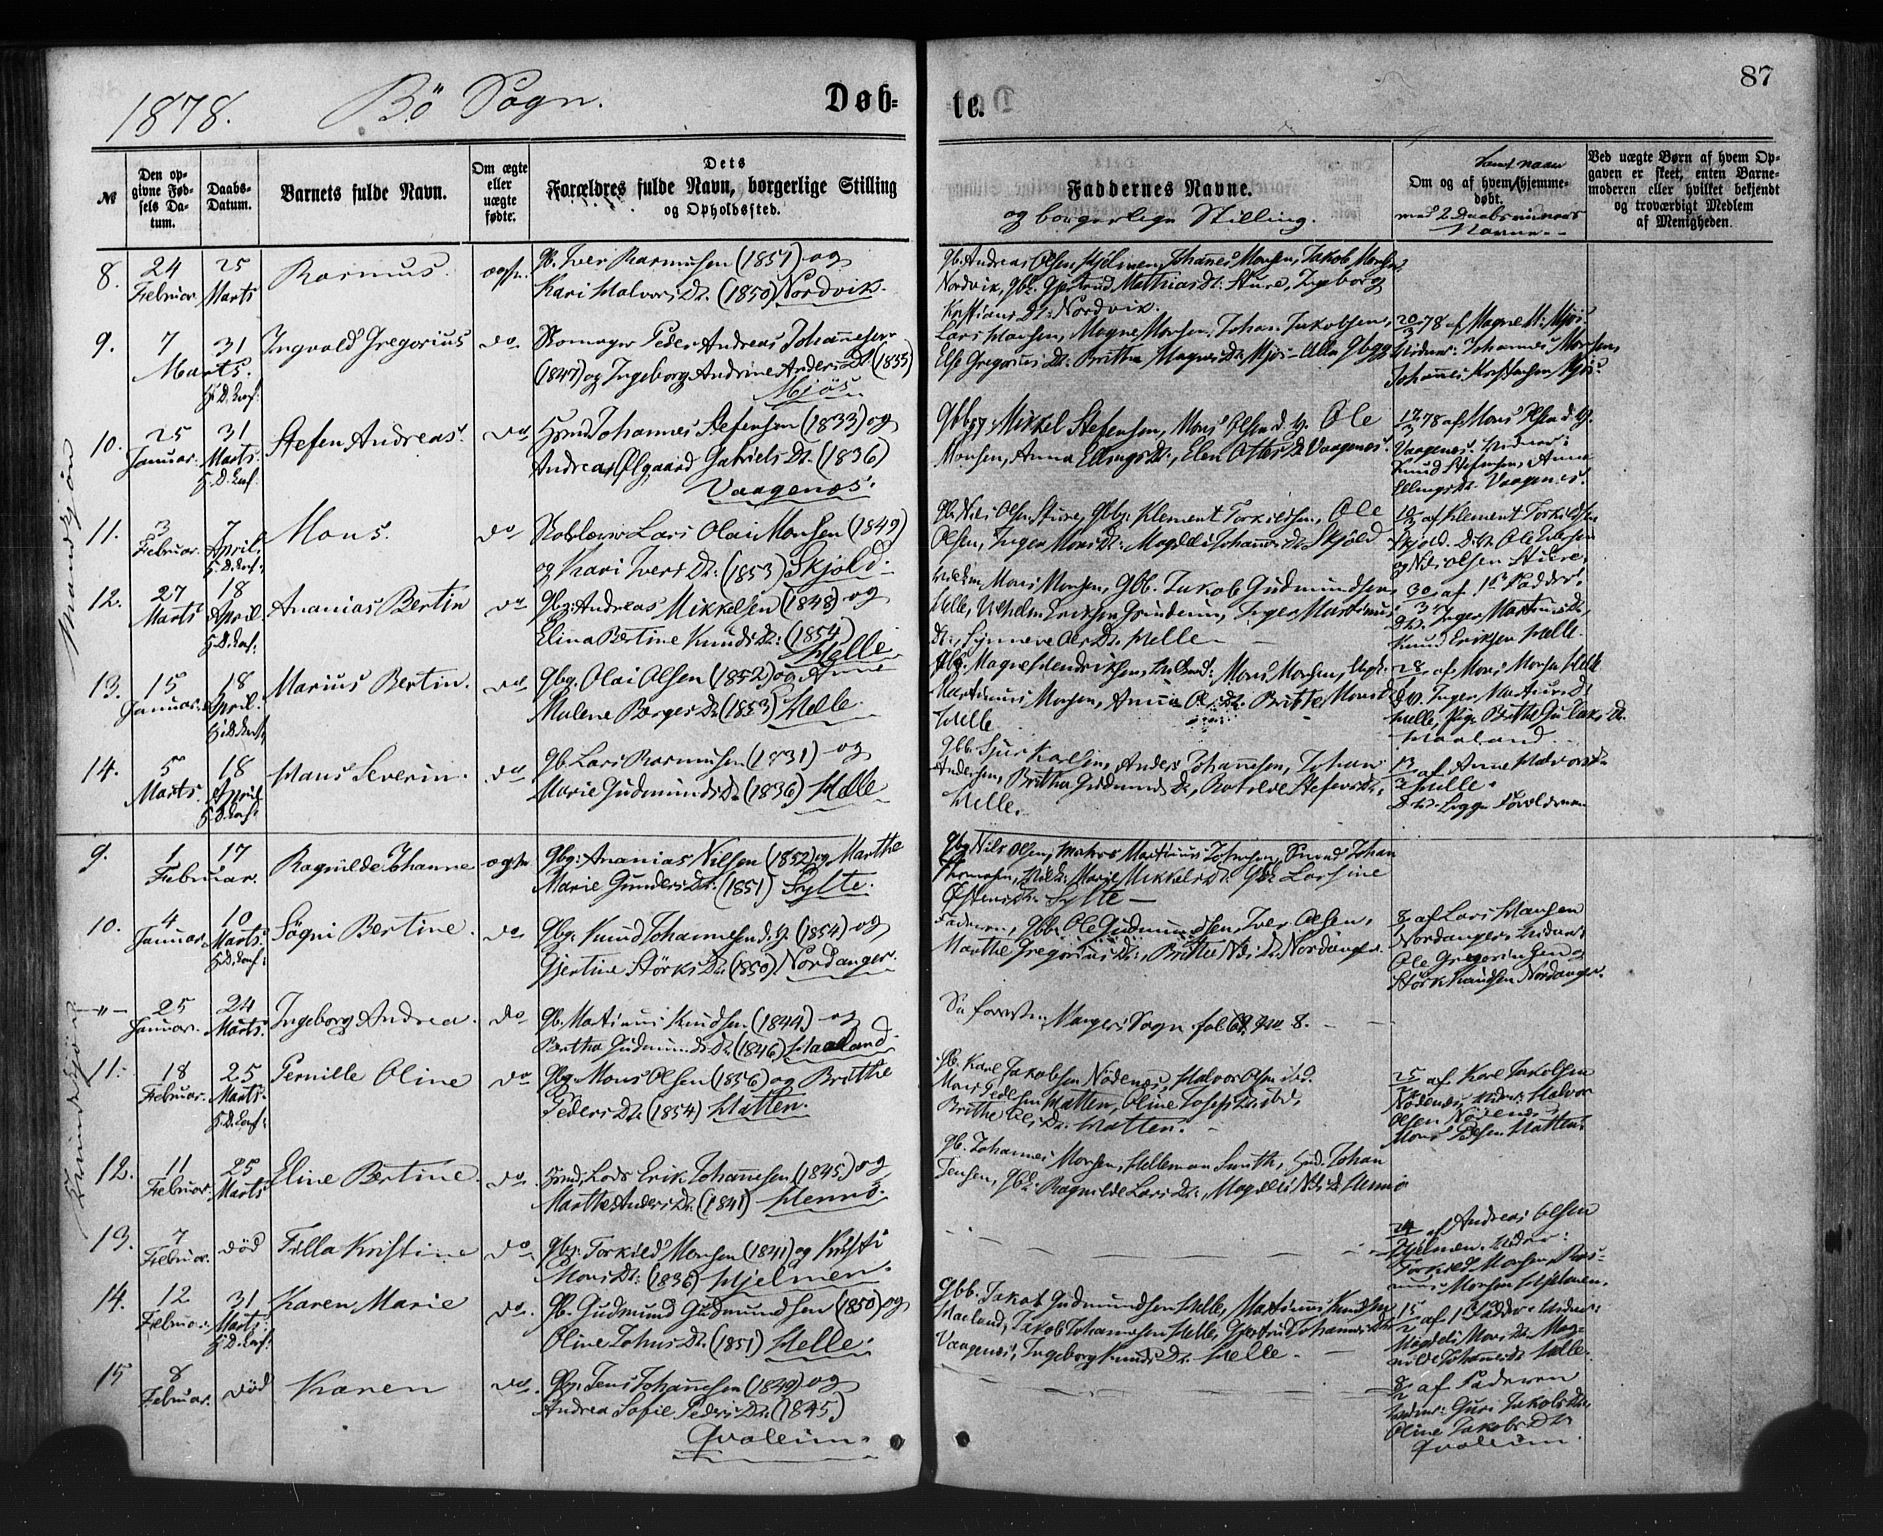 1878. Bö Sogn. Døb= te. 87
№
Den opgivne Fødsels Datum.
Daabs-Datum.
Barnets fulde Navn.
Om ægte eller uægte fødte.
Dets
Forældres fulde Navn, borgerlige Stilling
og Opholdssted.
Faddernes Navne.
og borgerlige Stilling.
Om og af hvem hjemmedøbt.
med 2 Daabsvidners Navne
Ved uægte Børn af hvem Opgaven er skeet, enten Barnemoderen eller hvilket bekjendt og troværdigt Medlem af Menigheden.
Mandkjøn
8. 24 Februar 25 Marts Rasmus. ægte.
Gb. Iver Rasmussen (1851) og
Kari Halvors Dr. (1850) Nordvik.
Gb. Andreas Olsen Hjelmen, Johanes Monsen, Jakob Monsen
Nordvik, Gbk. Gjertrud Mathias Dr. Sture, Ingeborg
Kristians Dr. Nordvik.
9. 7 Marts. 31 Ingvald Gregorius do
Skomager Peder Andreas Johannesen
(1847) og Ingeborg Andrine Anders Dr. (1835)
Mjøs
Lars Hansen, Magne Monsen, Johan Jakobsen,
Else Gregorius Dr. Brithe Magnes Dr. Mjøs
20/3 78 af Magne M. Mjøs
Vidner: Johannes Monsen,
10. 25 Januar. 31 Marts. Stefen Andreas. do
Johannes Stefensen (1833) og
Andrea Ølgaard Gabriels Dr. (1836)
Vaagenæs.
Mikkel Stefensen, Mons Olsen d. y. Ole
Monsen, Anna Ellings Dr., Elen Ottes Dr Vaagenæs.
17/3 78 af Mons Olsen d. y.
Vaagenæs. Vidner:
Knud Stefensen, Anna
Ellings Dr. Vaagenæs.
11. 3 Februar. 7 April. Mons. do
Lars Olai Monsen (1849)
og Kari Ivers Dr. (1853) Skjold.
Gb. Nils Olsen Sture, Gbg. Klement Torkildsen, Ole
Olsen, Inger Mons Dr. Magdeli Johannes Dr. Skjold
af Klement Torkildsen
Skjold. D.V. Ole Olsen
og Nils Olsen Sture.
12. 27 Marts 18 April Ananias Bertin do
Gbg. Andreas Mikkelsen (1848) og
Elina Bertine Knuds Dr. (1854)
Helle
Mons Monsen, Gbb. Jakob Gudmundsen
Helle, Inger Martinus
Dr., Synneve Ols Dr. Helle
30/3 af 1ste Fadder.
D.V. Inger Martinus Dr,
Knud Eriksen Helle.
13. 15 Januar. 18 April. Marius Bertin. do
Gbg. Olai Olsen (1852) og Anne
Malene Børges Dr. (1853) Helle.
Gbg. Magne Hendriksen, Mons Monsen, Ungk.
Martinus Monsen, Anna Ols Dr. Brithe Mons Dr.
Helle.
28/1 af Mons Monsen Helle
D.V. Inger Martinus Dr
Helle, Pige Brithe Dr.
Haaland
14. 5 Marts. 18 April Hans Severin. do
Gb. Lars Rasmussen (1831) og
Marie Gudmunds Dr. (1836) Helle
Gbb. Sjur Anders Johannesen, Johan
Andersen, Britha Gudmunds Dr, Stefens Dr.
Helle.
13/3 af Anne Halvors Dr
Helle.
Forældrene
Kvindekjøn
9. 1 Februar. 17 Ragnilde Johanne ægte
Gbg. Ananias Nilsen (1852) og Marthe
Marie Gunders Dr. (1851) Sylte.
Gbg Nils Olsen, Martinus Johnsen, Johan
Thomasen, Marie Mikkels Dr. Gbk Larsine
Østens Dr. Sylte
10. 4 Januar. 10 Marts. Sögni Bertine. do
Gbg. Knud Johannesen d. y. (1854) og
Gjertine Störks Dr. (1850) Nordanger.
Faderen, Gbb. Ole Gudmundsen, Iver Olsen,
Marthe Gregorius Dr., Brithe Nils Dr. Nordanger.
8/1 af Lars Hansen
Nordanger. Vidner:
Ole Gregoriusen og
Störk Knudsen Nordanger.
-"- 25 Januar. 24 Marts. Ingeborg Andrea. do
Gb. Martinus Knudsen (1844) og
Bertha Gudmunds Dr. (1846) Haaland.
Manger Sogn fol 69 No 8.
11. 18 Februar. 25 Marts. Pernille Oline do
Gbg. Mons Olsen (1856) og Brithe
Peders Dr. (1854) Hatten.
Gb. Karl Jakobsen Nødenæs, Halvor Olsen ibd.
Mons Pedersen Hatten, Oline Josefs Dr. ibd,
Brithe Ols Dr. Hatten.
25/2 af Karl Jakobsen
Nødenæs, Vidner: Halvor
Olsen Nødenæs,
Mons Pedersen Hatten.
12. 11 Februar. 25 Marts Eline Bertine. do
Lods Erik Johannesen (1845) og
Marthe Anders Dr. (1841) Hennø.
Gb. Johannes Monsen, Hellemon Smith, Johan
Jensen, Gbk. Ragnilde Lars Dr., Magdeli Nils Dr Hennø
13. 7 Februar. død Filla Kristine do
Gbg. Torkild Monsen (1841) og Kristi
Mons Dr. (1836) Hjelmen.
24/2 af Andreas Olsen
Hjelmen. Vidner:
Torkild Monsen, Rasmus Monsen Hjelmen.
14. 12 Februar. 31 Marts. Karen Marie do.
Gb. Gudmund Gudmundsen (1850) og
Oline Johns Dr. (1851) Helle.
Gbb. Jakob Gudmundsen Helle, Martinus Knudsen
Haaland, Jakob Johannesen Helle, Gjertrud Johannes Dr
Vaagenæs, Ingeborg Knuds Dr. Helle.
15/2 af 1 Fadder. Vidner:
Magdeli Mons Dr. Magnilde Johannes Dr Helle.
15 8 Februar. død Karen do.
Gbg. Jens Johannesen (1849) og
Andrea Sofie Peders Dr. (1845)
Qvaleim.
8/2 af Faderen
Vidner: Guri Jakobs Dr.
Oline Jakobs Dr
Qvaleim.